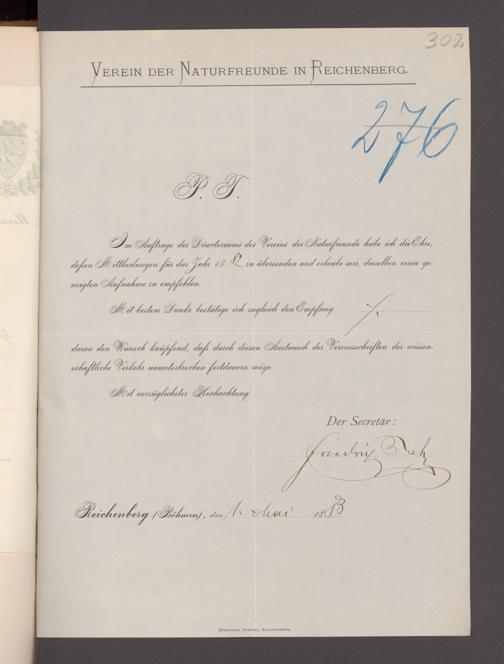 302
VEREIN DER NATURFREUNDE IN REICHENBERG.
276
P. T.
Im Auftrage des Directoriums des Vereins der Naturfreunde habe ich die Ehre,
deßen Mittheilungen für das Jahr 18 zu übersenden und erlaube mir, dieselben einer ge-
neigten Aufnahme zu empfehlen.
Mit bestem Danke bestätige ich zugleich den Empfang ./.
daran den Wunsch knüpfend, daß durch diesen Austausch der Vereinsschriften der wissen-
schaftliche Verkehr ununterbrochen fortdauern möge.
Mit vorzüglichster Hochachtung
Der Secretär:
Friedrich
Reichenberg (Böhmen), den 1. Mai 18